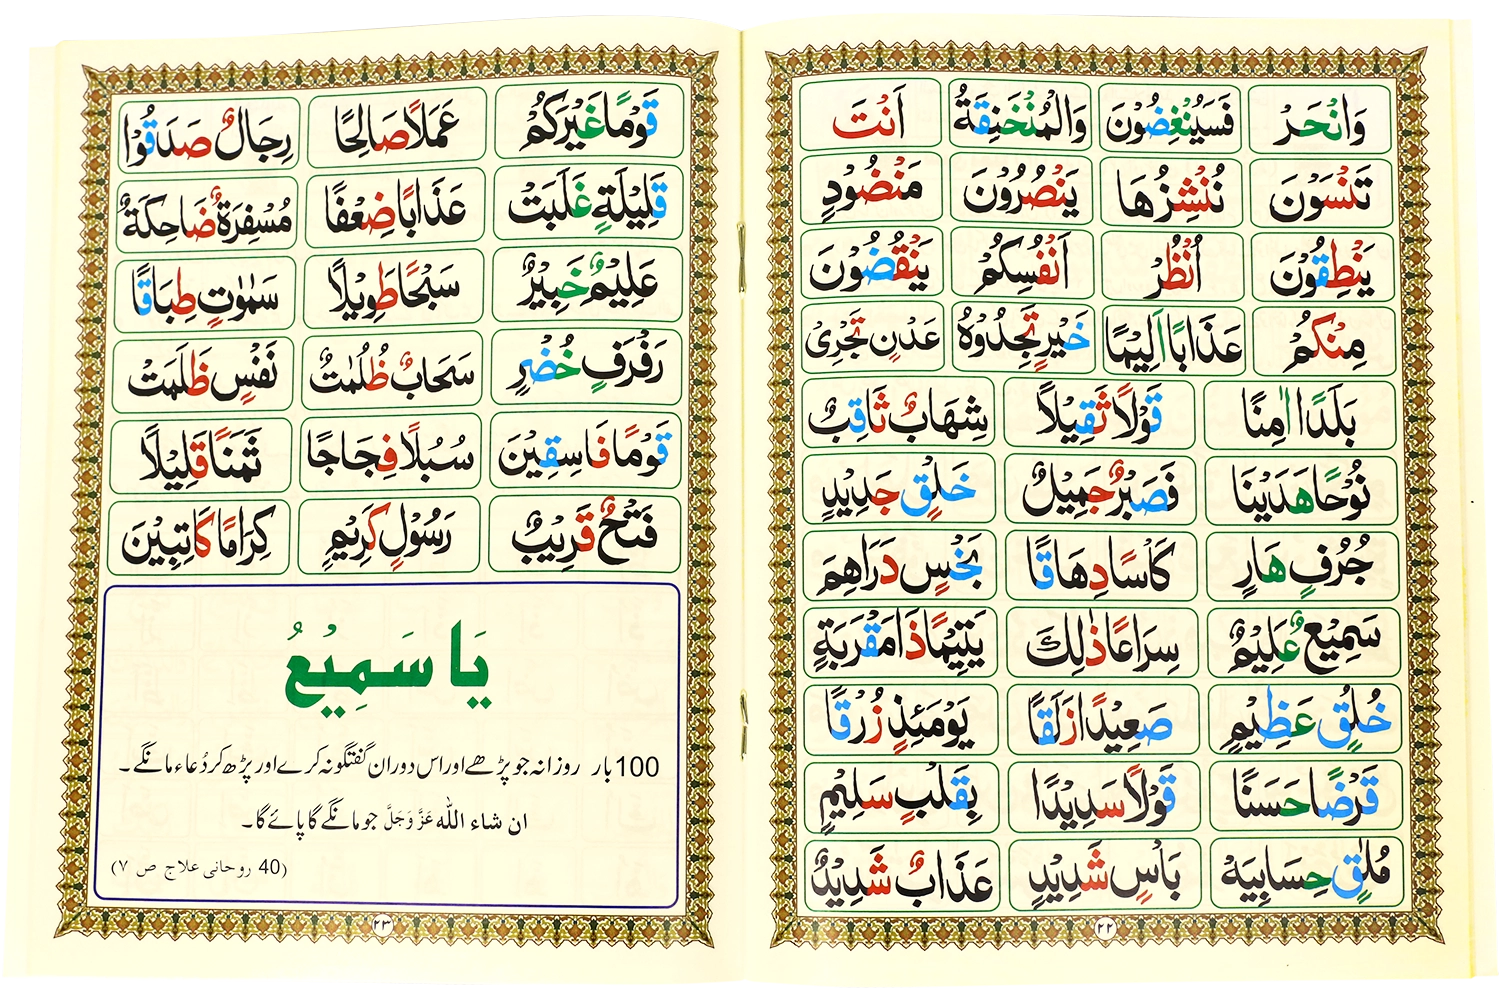 وَانْحَرْ فَسَيُنْغِضُوْنَ وَالْمُنْخَنِقَةُ اَنْتَ
تَنْسَوْنَ نُنْشِزُهَا يَنْصُرُوْنَ مَنْضُوْدٍ
يَنْطِقُوْنَ اُنْظُرْ اَنْفُسِكُمْ يَنْقُضُوْنَ
مِنْكُمْ عَذَابًا اَلِيْمًا خَيْرٍ تَجِدُوْهُ عَدْنٍ تَجْرِىْ
بَلَدًا اٰمِنًا قَوْلًا ثَقِيْلًا شِهَابٌ ثَاقِبٌ
نُوْحًا هَدَيْنَا فَصَبْرٌ جَمِيْلٌ خَلْقٍ جَدِيْدٍ
جُرُفٍ هَارٍ كَاْسًا دِهَاقًا بَخْسٍ دَرَاهِمَ
سَمِيْعٌ عَلِيْمٌ سِرَاعًا ذٰلِكَ يَتِيْمًا ذَا مَقْرَبَةٍ
خُلُقٍ عَظِيْمٍ صَعِيْدًا زَلَقًا يَوْمَئِذٍ زُرْقًا
قَرْضًا حَسَنًا قَوْلًا سَدِيْدًا بِقَلْبٍ سَلِيْمٍ
مُلٰقٍ حِسَابِيَهْ بَاْسٍ شَدِيْدٍ عَذَابٌ شَدِيْدٌ
٢٢
قَوْمًا غَيْرَكُمْ عَمَلًا صَالِحًا رِجَالٌ صَدَقُوْا
قَلِيْلَةٍ غَلَبَتْ عَذَابًا ضِعْفًا مُسْفِرَةٌ ضَاحِكَةٌ
عَلِيْمٌ خَبِيْرٌ سَبْحًا طَوِيْلًا سَمٰوٰتٍ طِبَاقًا
رَفْرَفٍ خُضْرٍ سَحَابٌ ظُلُمٰتٌ نَفْسٍ ظَلَمَتْ
قَوْمًا فَاسِقِيْنَ سُبُلًا فِجَاجًا ثَمَنًا قَلِيْلًا
فَتْحٌ قَرِيْبٌ رَسُوْلٍ كَرِيْمٍ كِرَامًا كَاتِبِيْنَ
يَا سَمِيْعُ
100 بار روزانہ جو پڑھے اور اس دوران گفتگو نہ کرے اور پڑھ کر دُعاء مانگے۔
ان شاء اللّٰہ عَزَّوَجَلَّ جو مانگے گا پائے گا۔
(40 روحانی علاج ص ٧)
٢٣